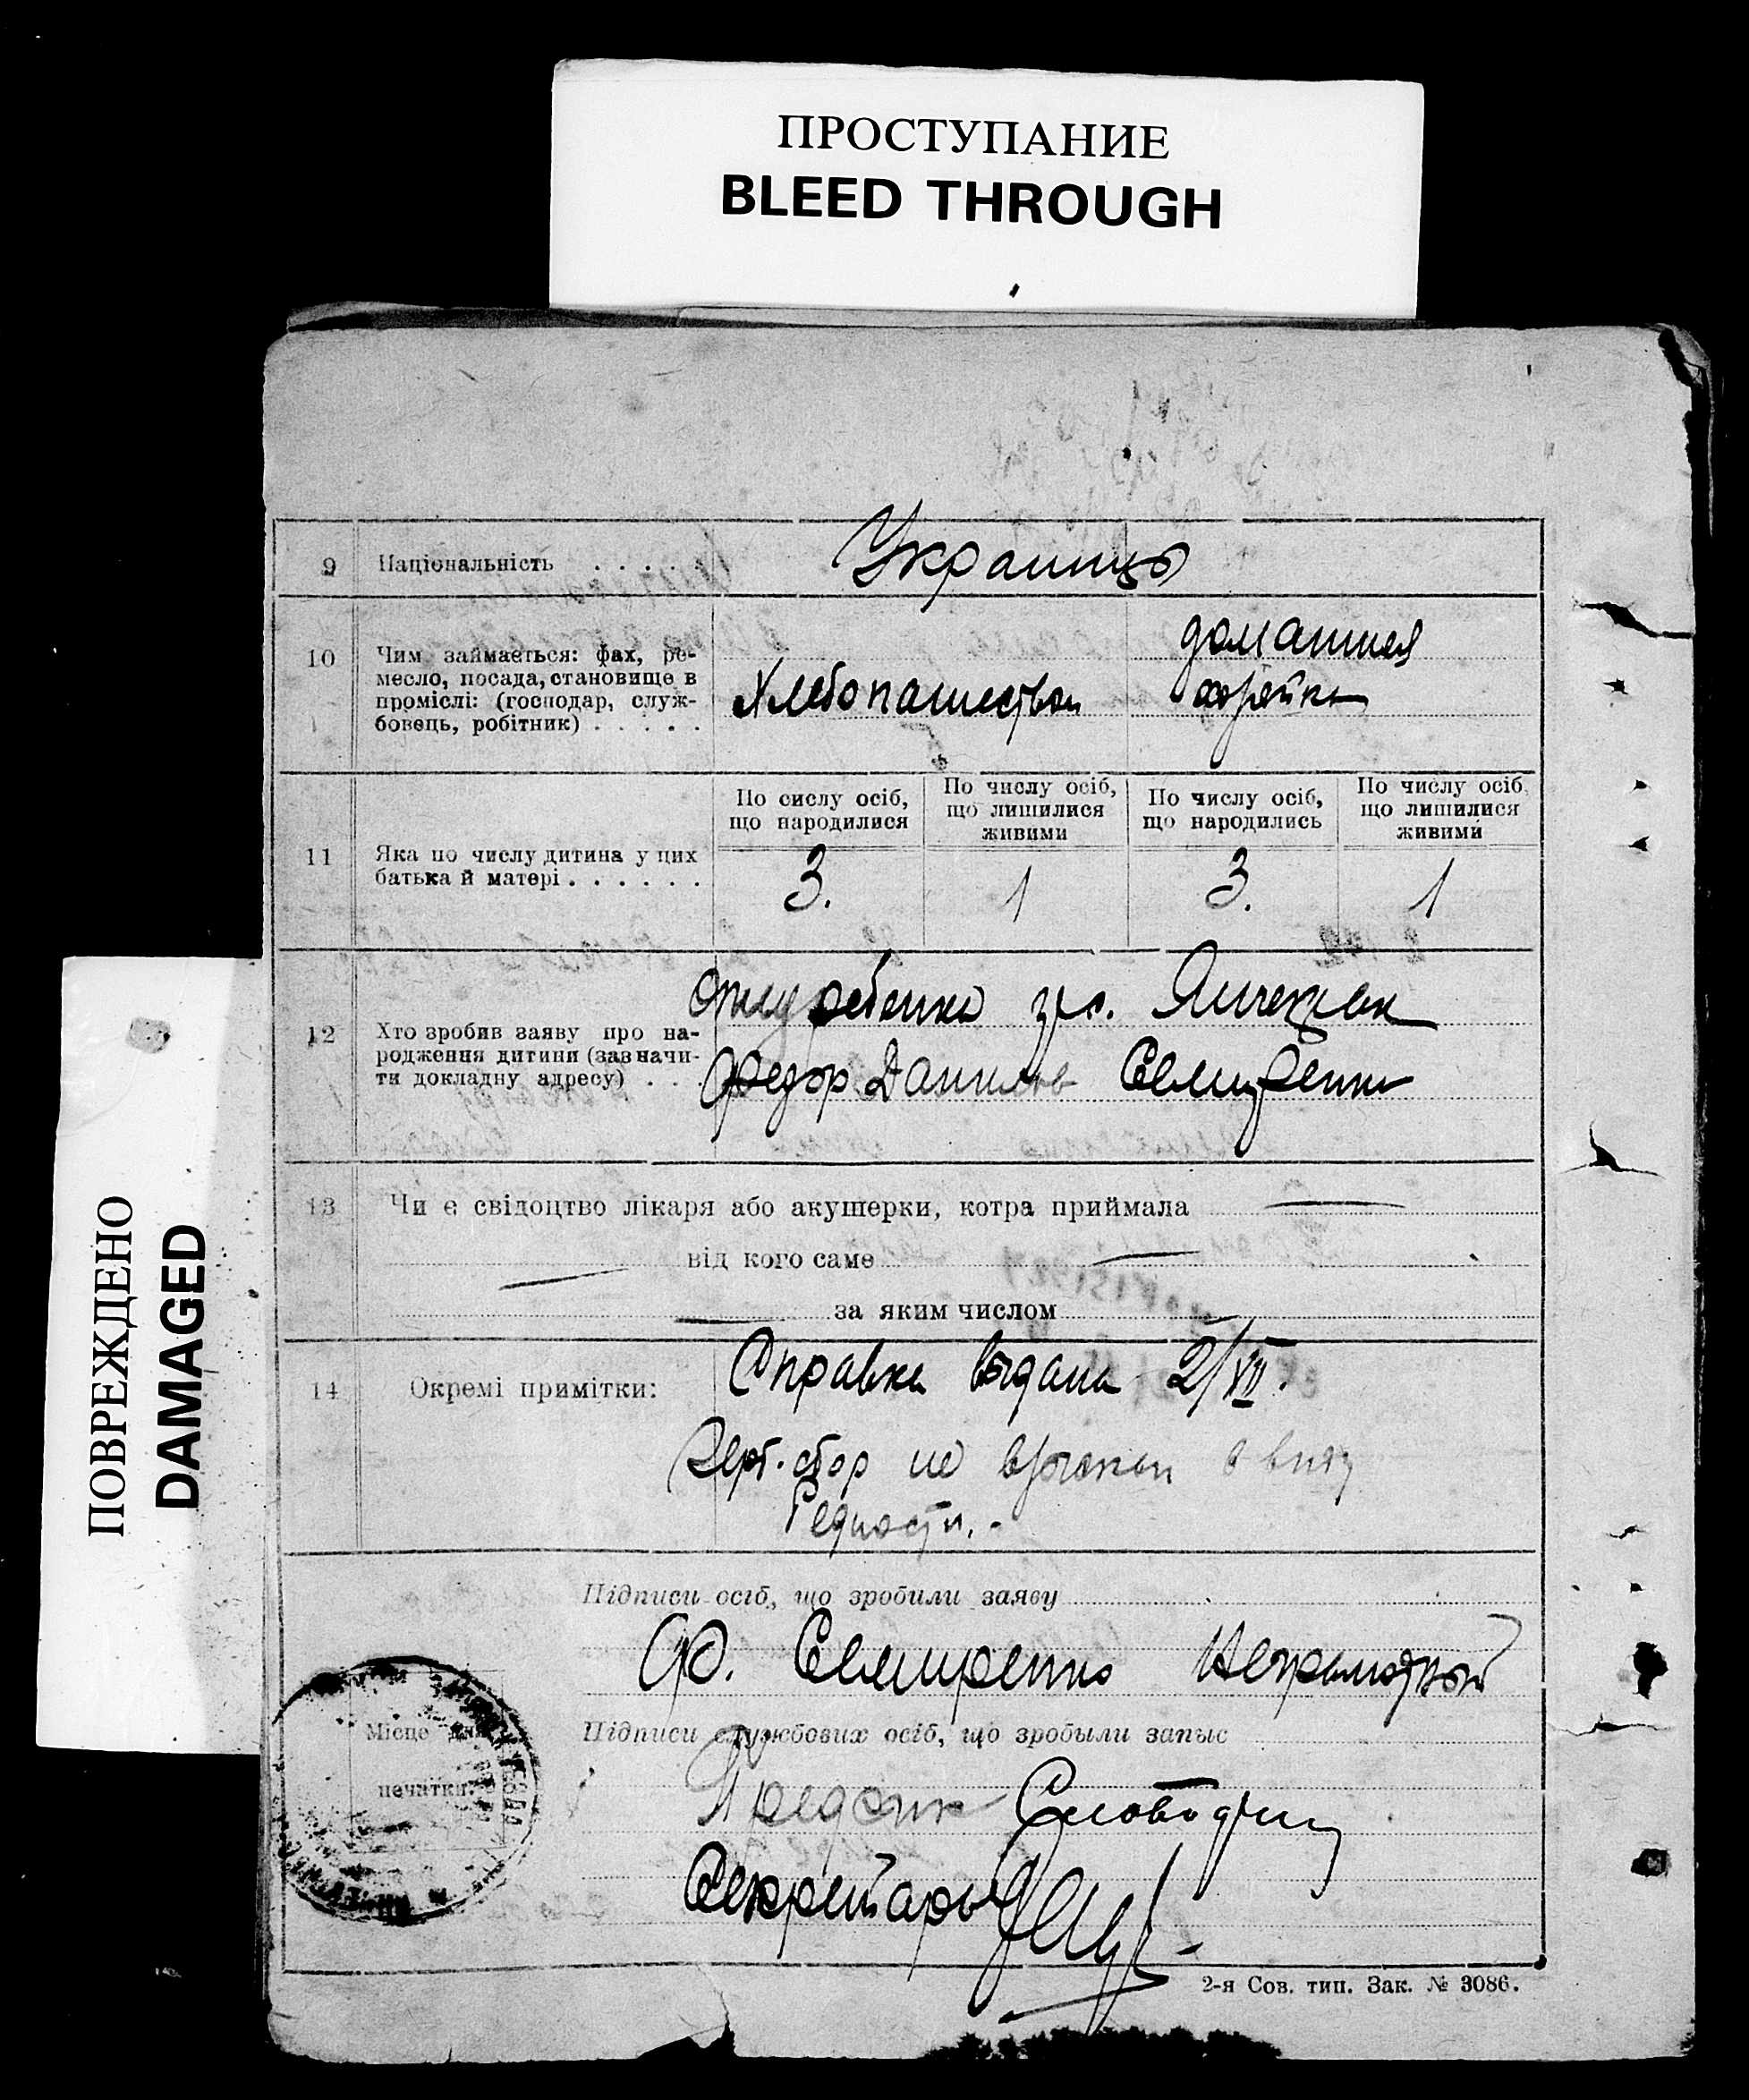 ПРОСТУПАНИЕ
BLEED THROUGH
ПОВРЕЖДЕНО
DAMAGED
9 Національність . . . . . Украинцы
10 Чим займається: фах, ре-
месло, посада, становище в
проміслі: (господар, служ-
бовець, робітник) . . . . .
Хлебопашеством
домашняя
хозяйка
11 Яка по числу дитина у цих
батька й матері . . . . . .
По сислу осіб,
що народилися
По числу осіб,
що лишилися
живими
По числу осіб,
що народились
По числу осіб,
що лишилися
живими
3. 1 3. 1
12 Хто зробив заяву про на-
родження дитини (зазначи-
ти докладну адресу) . . .
ребенка
Федор Данилов Семиренко
13 Чи є свідоцтво лікаря або акушерки, котра приймала
від кого саме
за яким числом
14 Окремі примітки:
Справка выдана 2/VII.
Герб. сбор не в виду
бедности.
Підписи осіб, що зробили заяву
Ф. Семиренко Неграмотный
Місце для
печатки.
Підписи службових осіб, що зробыли запыс
Секретарь
2-я Сов. тип. Зак. № 3086.